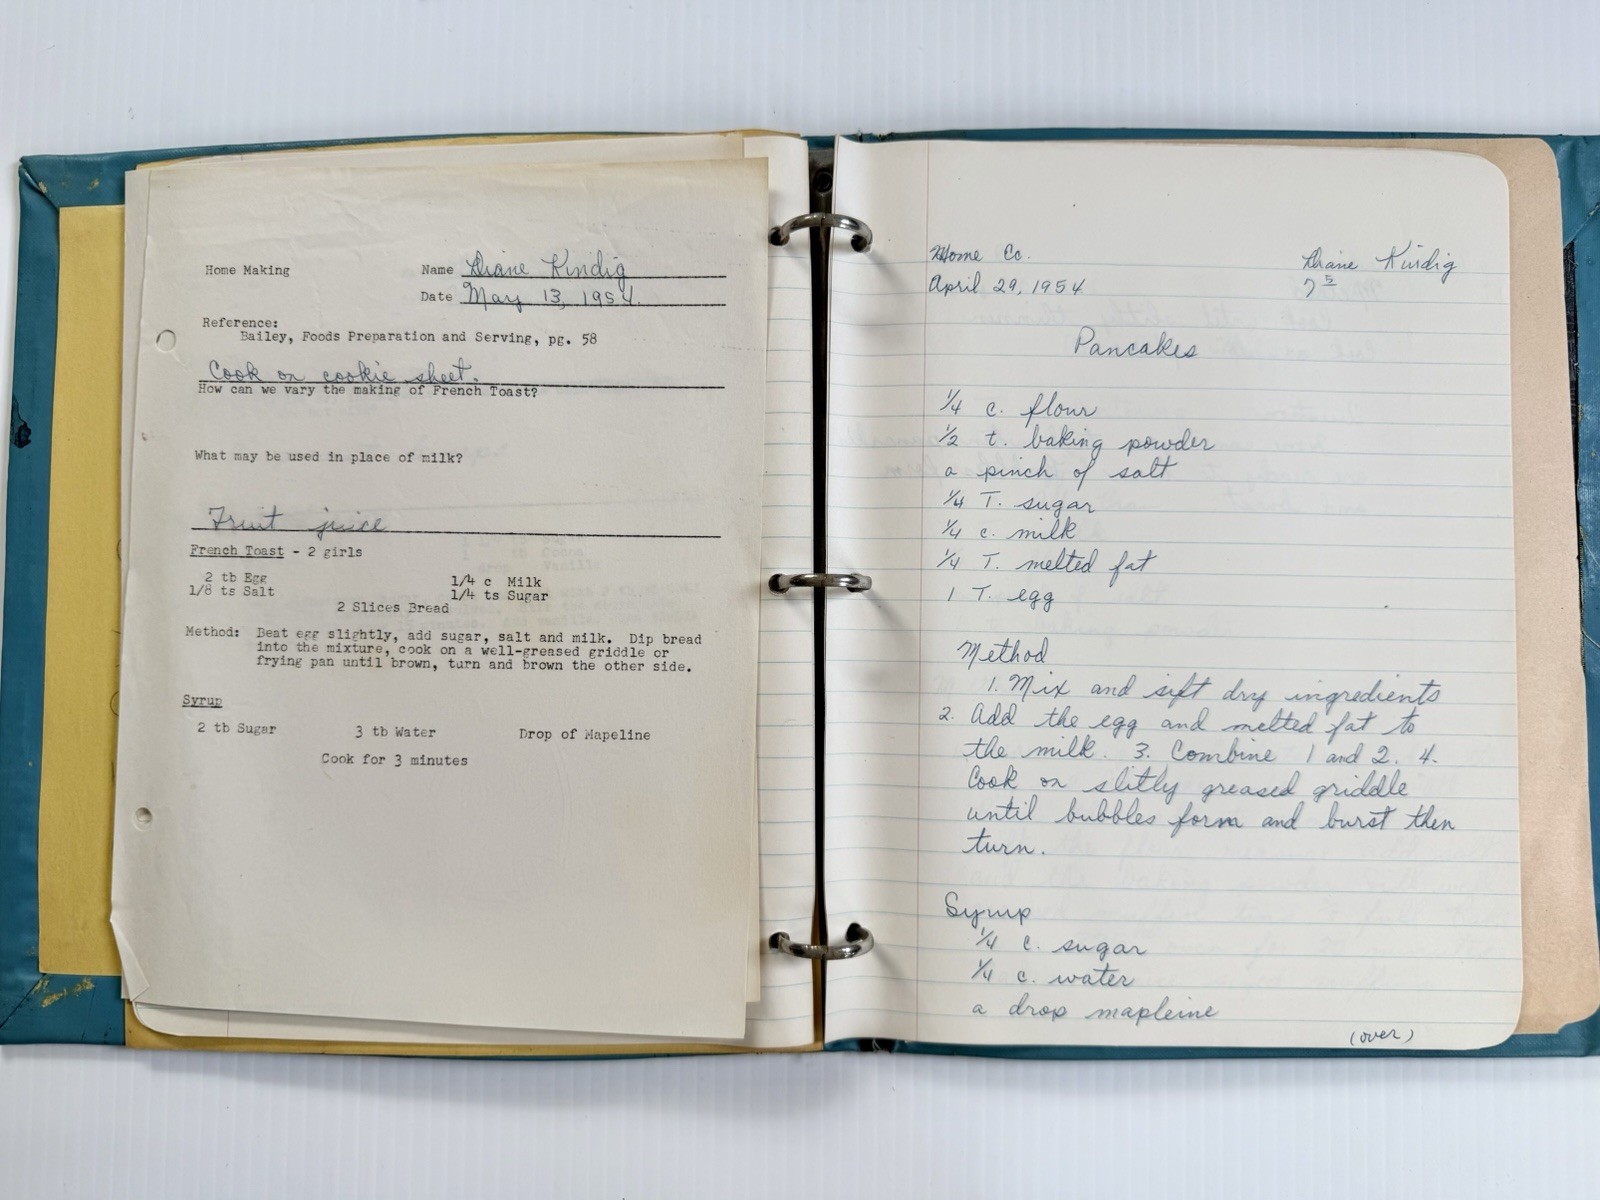 Home Making
Name Diane Kindig
Date May 13, 1954.
Reference:
Bailey, Foods Preparation and Serving, pg. 58
Cook on cookie sheet.
How can we vary the making of French Toast?
What may be used in place of milk?
Fruit juice
French Toast - 2 girls
2 tb Egg 1/4 c Milk
1/8 ts Salt 1/4 ts Sugar
2 Slices Bread
Method: Beat egg slightly, add sugar, salt and milk. Dip bread
into the mixture, cook on a well-greased griddle or
frying pan until brown, turn and brown the other side.
Syrup
2 tb Sugar 3 tb Water Drop of Mapeline
Cook for 3 minutes
Home Ec. Diane Kindig
April 29, 1954 7 5
Pancakes
1/4 c. flour
1/2 t. baking powder
a pinch of salt
1/4 T. sugar
1/4 c. milk
1/4 T. melted fat
1 T. egg
Method
1. Mix and sift dry ingredients
2. Add the egg and melted fat to
the milk. 3. Combine 1 and 2. 4.
Cook on slitly greased griddle
until bubbles form and burst then
turn.
Syrup
1/4 c. sugar
1/4 c. water
a drop mapleine
(over)